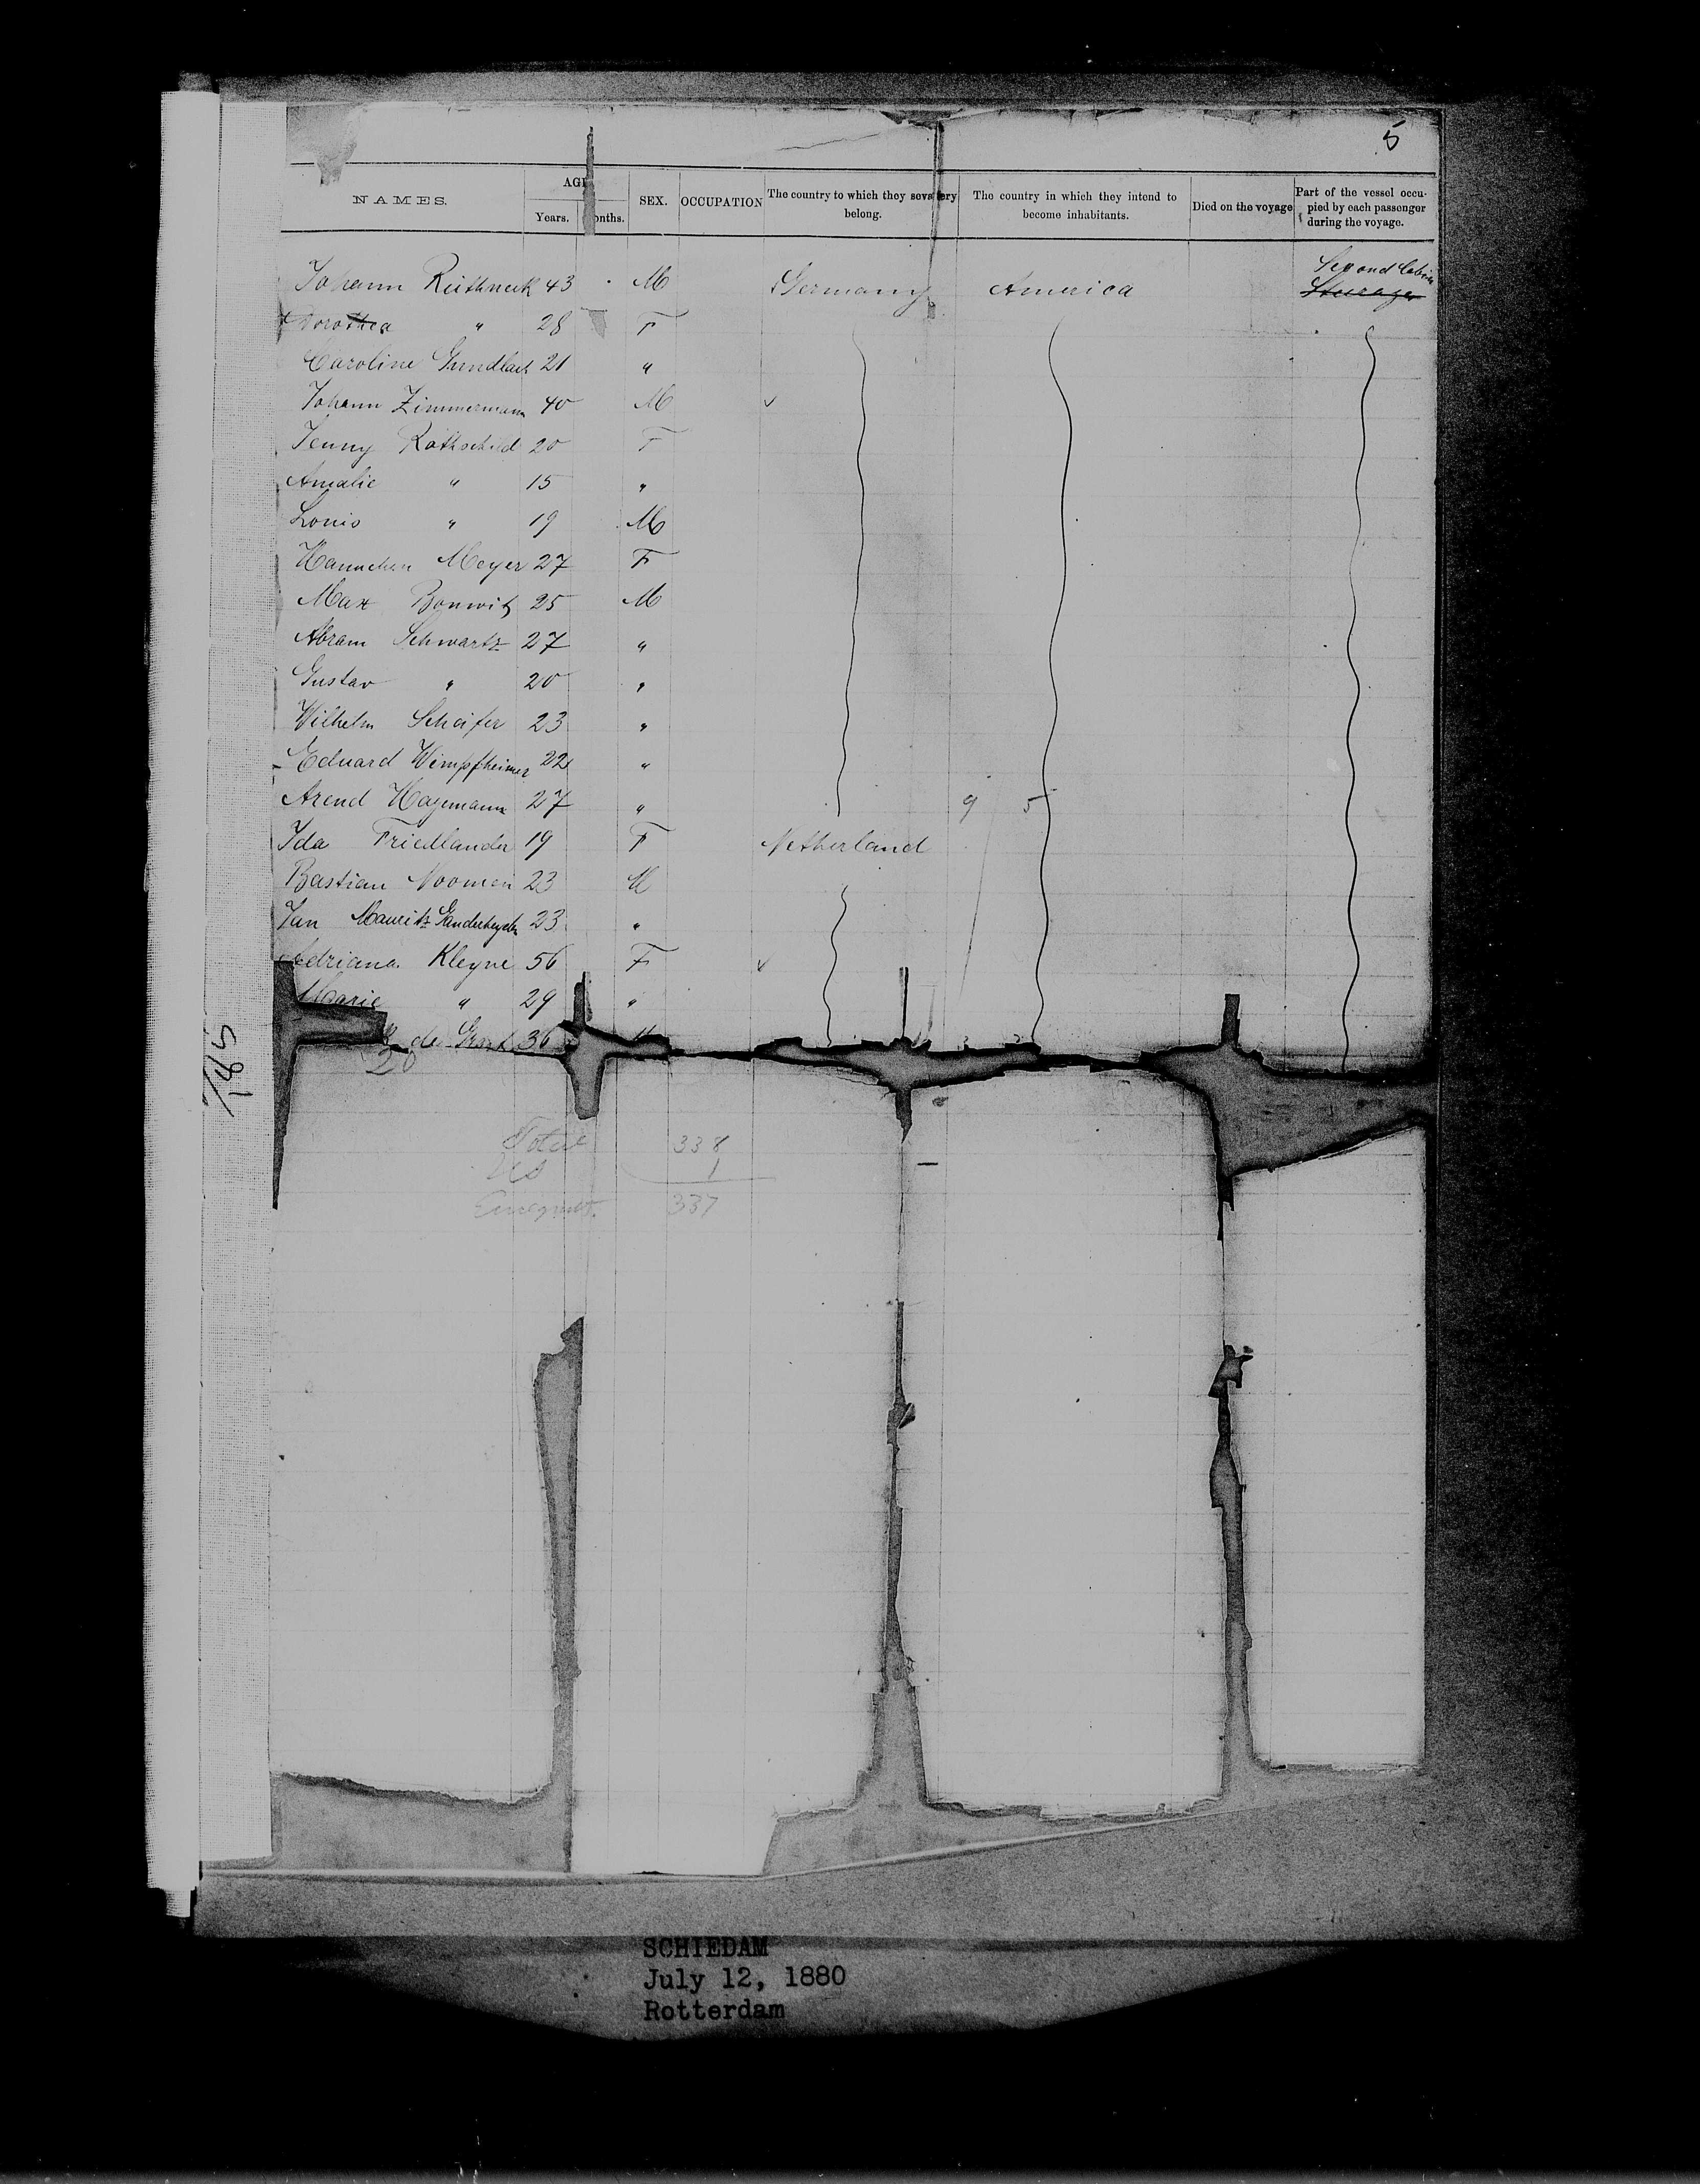 5
NAMES. AGE SEX. OCCUPATION The country to which they severally belong. The country in which they intend to become inhabitants. Died on the voyage Part of the vessel occupied by each passenger during the voyage.
Years. Months.
Second Cabin
Johann 43 M Germany America Steerage
Dorothea " 28 F
Caroline Gundlach 21 "
Johann Zimmermann 40 M ✓
Jenny Rothschild 20 F
Amalie " 15 "
Louis " 19 M
Hannchen Meyer 27 F
Max Bonwit 25 M
Abram Schwartz 27 "
Gustav " 20 "
Wilhelm Schäfer 23 "
Eduard Wimpfheimer 22 "
Arend Hagemann 27 " 9 5
Ida Friedlander 19 F Netherland
Bastian Noomen 23 M
Jan Maurits 23 "
Adriana Kleyne 56 F ✓
Marie " 29 "
de 36
20
Total 338
US 1
337
785
SCHIEDAM
July 12, 1880
Rotterdam